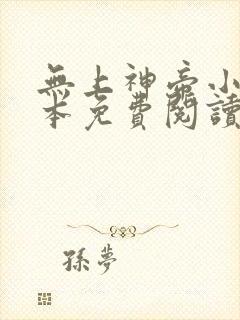 無上神帝小
本免費閱讀
孫夢